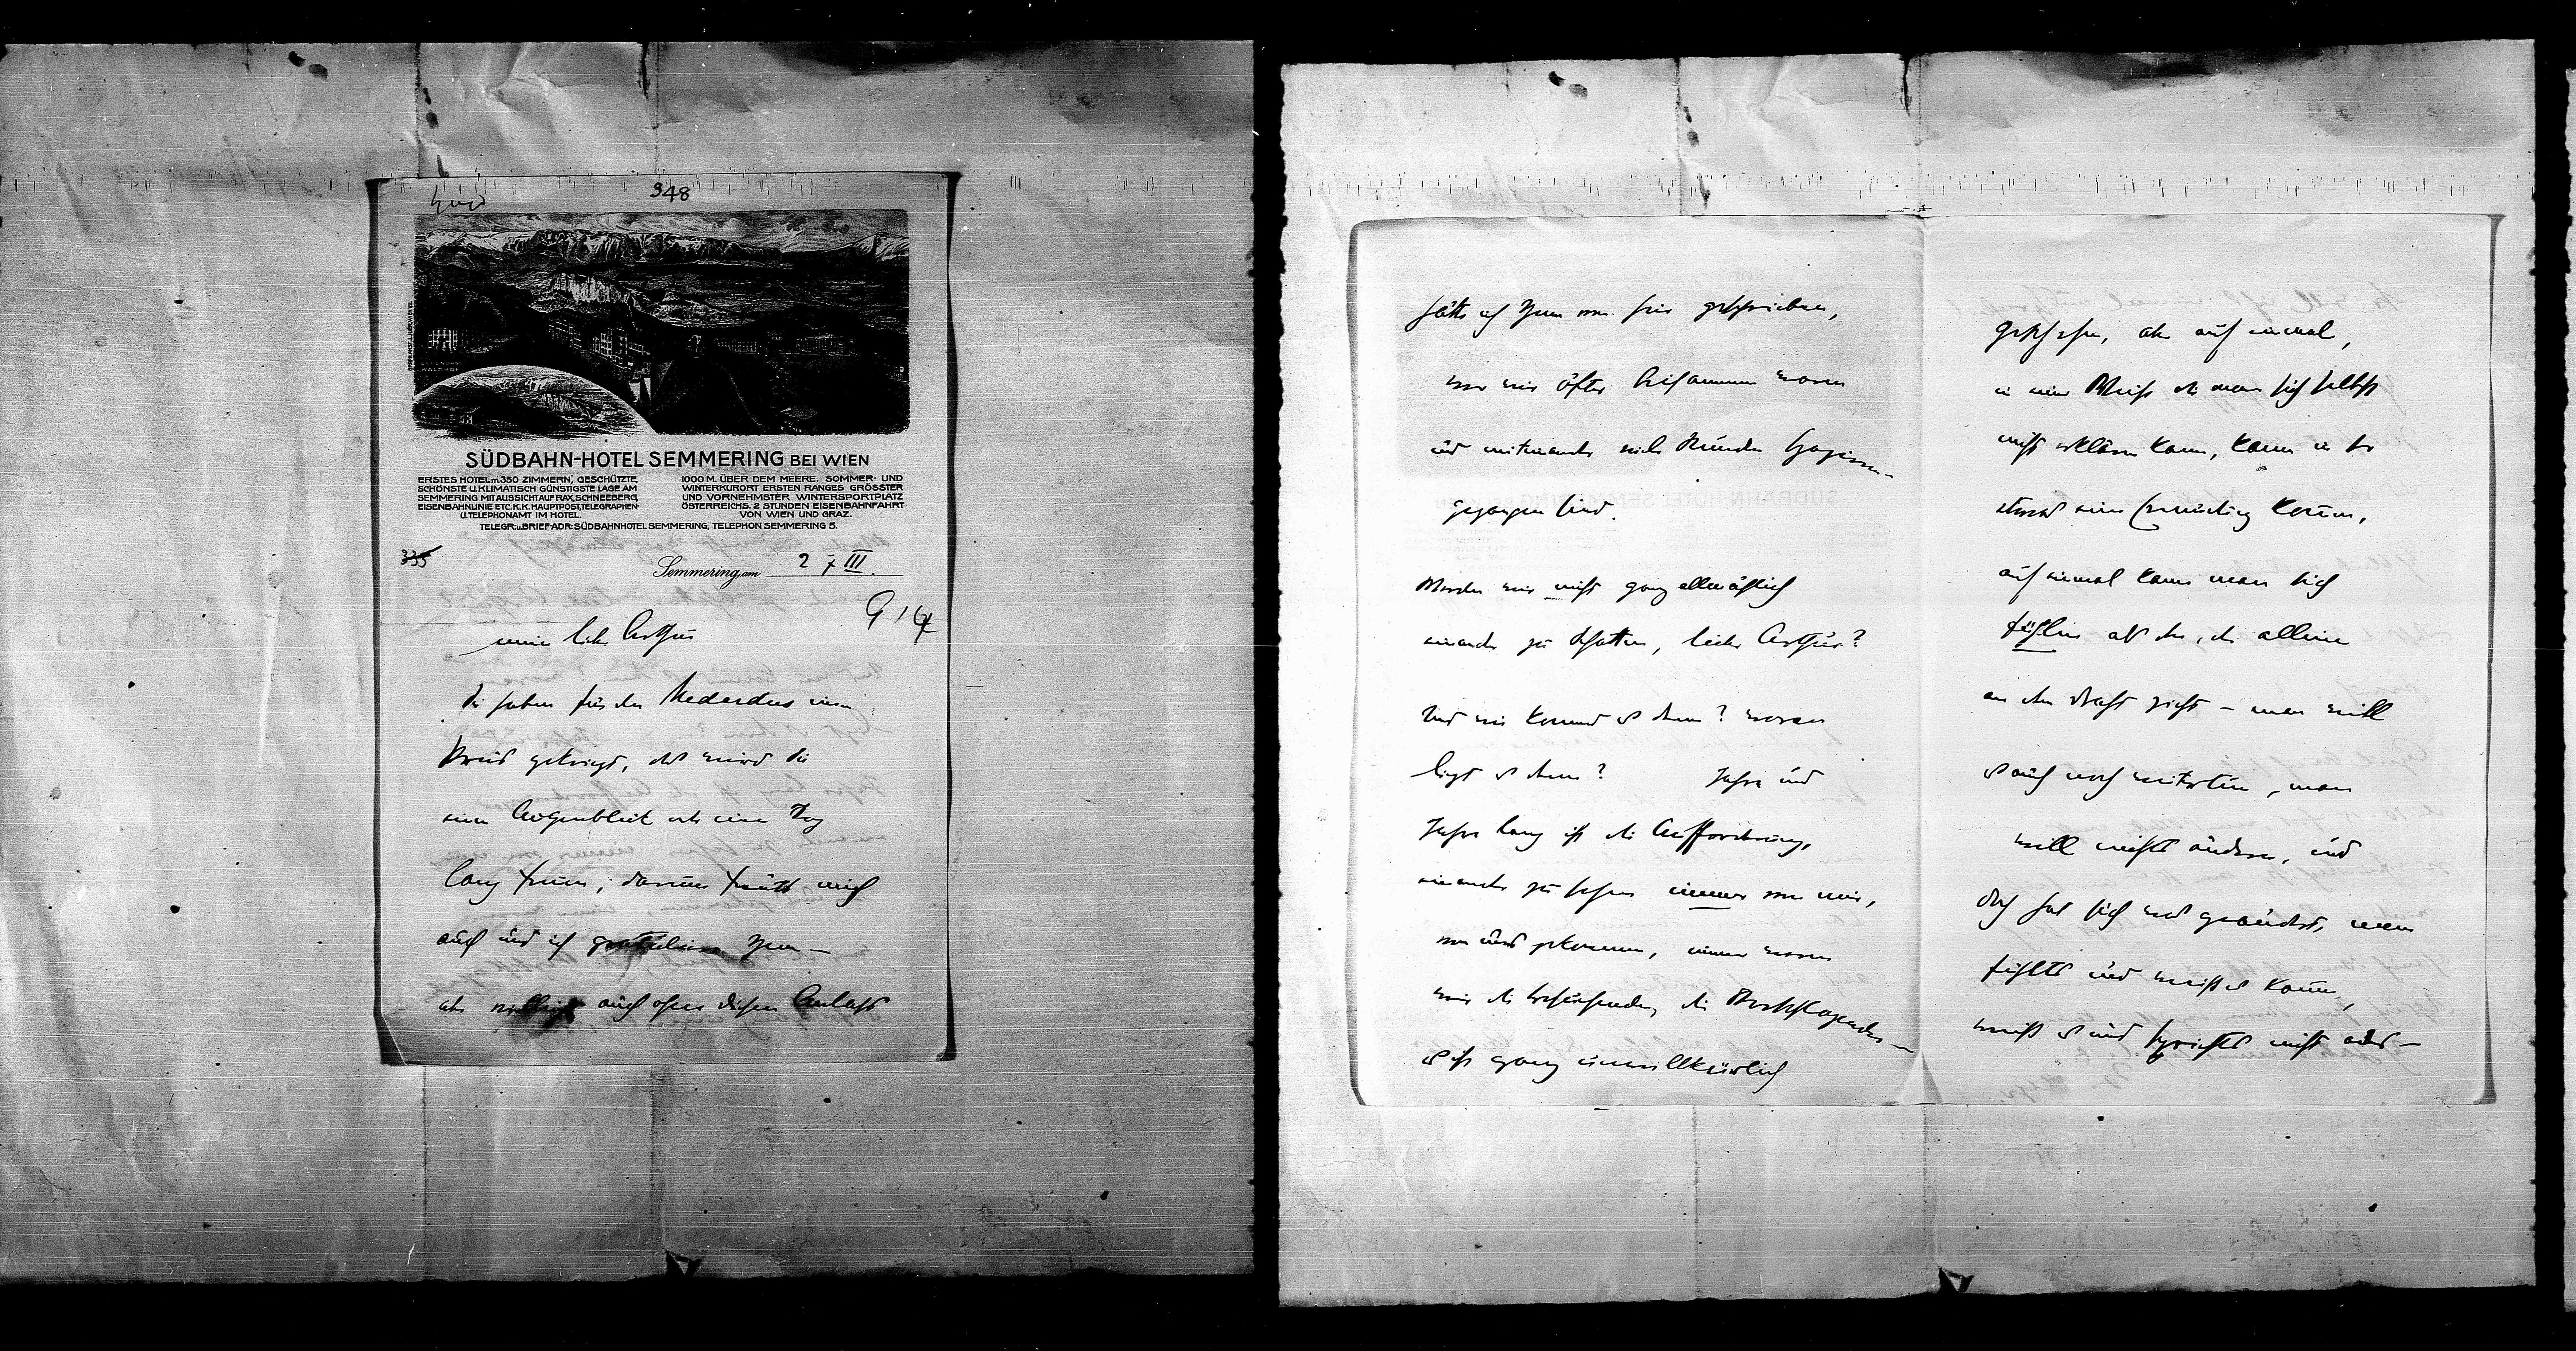 348
SÜDBAHN-HOTEL SEMMERING BEI WIEN
ERSTES HOTEL m. 350 ZIMMERN, GESCHÜTZTE,
SCHÖNSTE U. KLIMATISCH GÜNSTIGSTE LAGE AM
SEMMERING MIT AUSSICHT AUF RAX, SCHNEEBERG,
EISENBAHNLINIE ETC. K.K. HAUPTPOST, TELEGRAPHEN-
U. TELEPHONAMT IM HOTEL.
1000 M. ÜBER DEM MEERE. SOMMER- UND
WINTERKURORT ERSTEN RANGES GRÖSSTER
UND VORNEHMSTER WINTERSPORTPLATZ
ÖSTERREICHS. 2 STUNDEN EISENBAHNFAHRT
VON WIEN UND GRAZ.
TELEGR: u. BRIEF-ADR: SÜDBAHNHOTEL SEMMERING, TELEPHON SEMMERING 5.
335
Semmering, am 27 III.
914
mein lieber Arthur
Sie haben für den Medardus einen
Preis gekriegt, das wird Sie
einen Augenblick oder einen Tag
lang freuen, darum freuts mich
auch und ich gratuliere Ihnen –
aber vielleicht auch ohne diesen Anlass
hätte ich Ihnen von hier geschrieben,
wo wir öfter beisammen waren
und miteinander viele Stunden spazieren-
gegangen sind.
Werden wir nicht ganz allmählich
einander zu Schatten, lieber Arthur?
Und wie kommt es denn? woran
liegt es denn? Jahre und
Jahre lang ist die Aufforderung,
einander zu sehen immer von mir,
von uns gekommen, immer waren
wir die Ersuchenden, die Vorschlagenden –
es ist ganz unwillkürlich
geschehen, aber auf einmal,
in einer Weise die man sich selbst
nicht erklären kann, kann in so
etwas eine Ermüdung kommen,
auf einmal kann man sich
fühlen als der, der alleine
an dem Draht zieht – man will
es auch noch weiter tun, man
will nichts ändern, und
doch hat sich was geändert, man
fühlts und weiß es kaum,
weiß es und sprichts nicht aus –